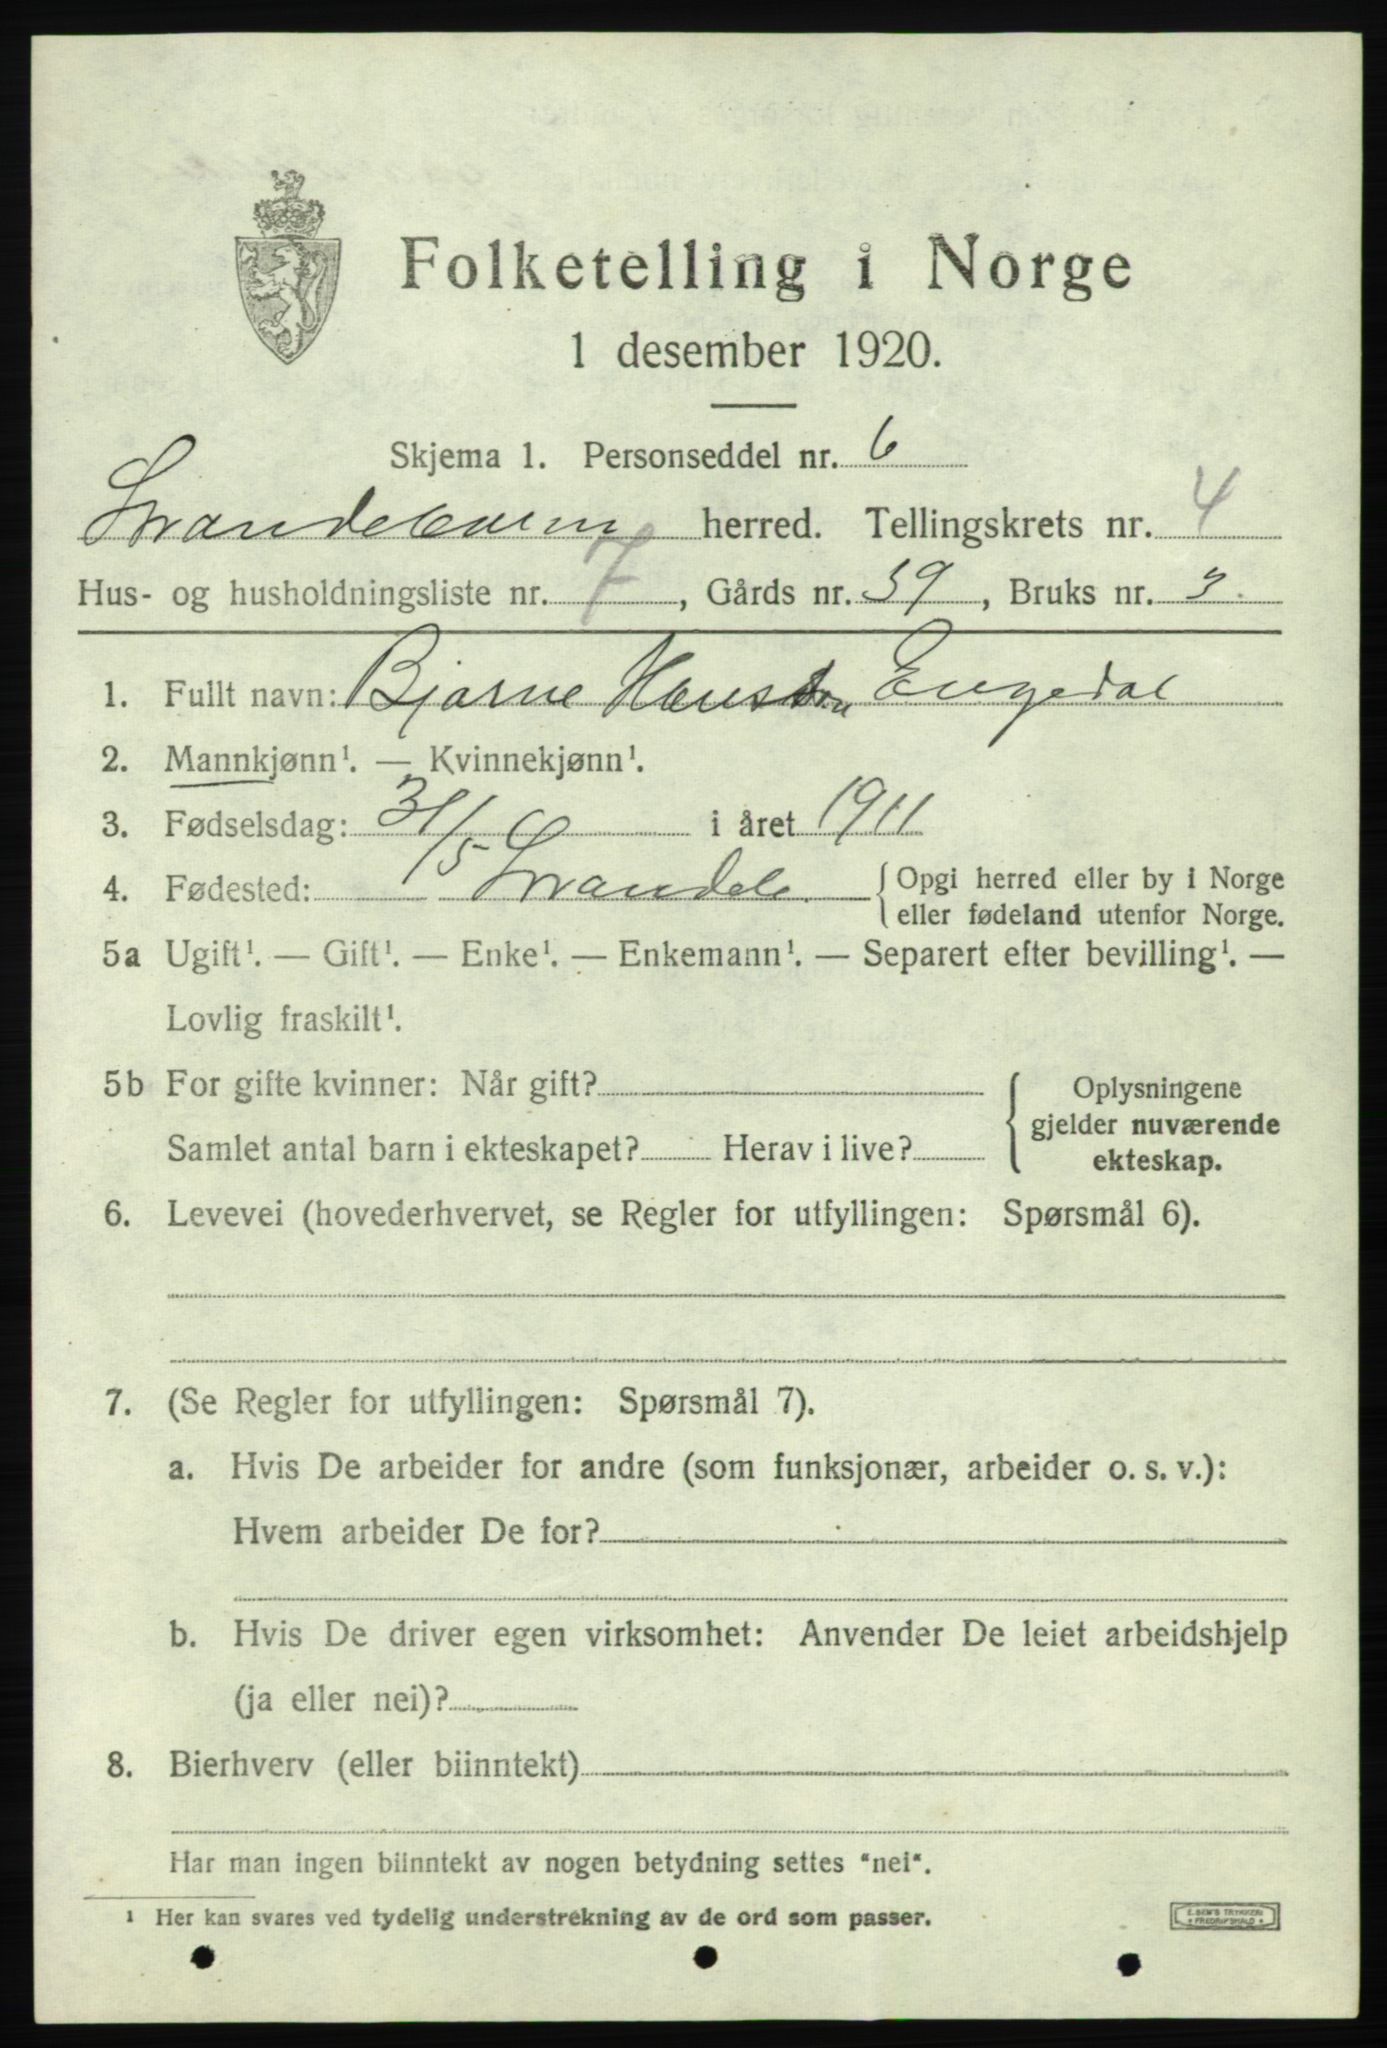 Folketelling i Norge
1 desember 1920.
Skjema 1. Personseddel nr. 6
Strandebarm herred. Tellingskrets nr. 4
Hus- og husholdningsliste nr. 7, Gårds nr. 39, Bruks nr. 3.
1. Fullt navn: Bjarne Hansson Engedal
2. Mannkjønn¹. — Kvinnekjønn¹.
3. Fødselsdag: 31/5 i året 1911
4. Fødested: Strandeb. { Opgi herred eller by i Norge
eller fødeland utenfor Norge.
5a Ugift¹. — Gift¹. — Enke¹. — Enkemann¹. — Separert efter bevilling¹. —
Lovlig fraskilt¹.
5b For gifte kvinner: Når gift? { Oplysningene
gjelder nuværende
Samlet antal barn i ekteskapet? Herav i live? ekteskap.
6. Levevei (hovederhvervet, se Regler for utfyllingen: Spørsmål 6).
7. (Se Regler for utfyllingen: Spørsmål 7).
a. Hvis De arbeider for andre (som funksjonær, arbeider o. s. v.):
Hvem arbeider De for?
b. Hvis De driver egen virksomhet: Anvender De leiet arbeidshjelp
(ja eller nei)?
8. Bierhverv (eller biinntekt)
Har man ingen biinntekt av nogen betydning settes "nei".
¹ Her kan svares ved tydelig understrekning av de ord som passer.
E. SEM'S TRYKKERI
* FREDRIKSHALD *